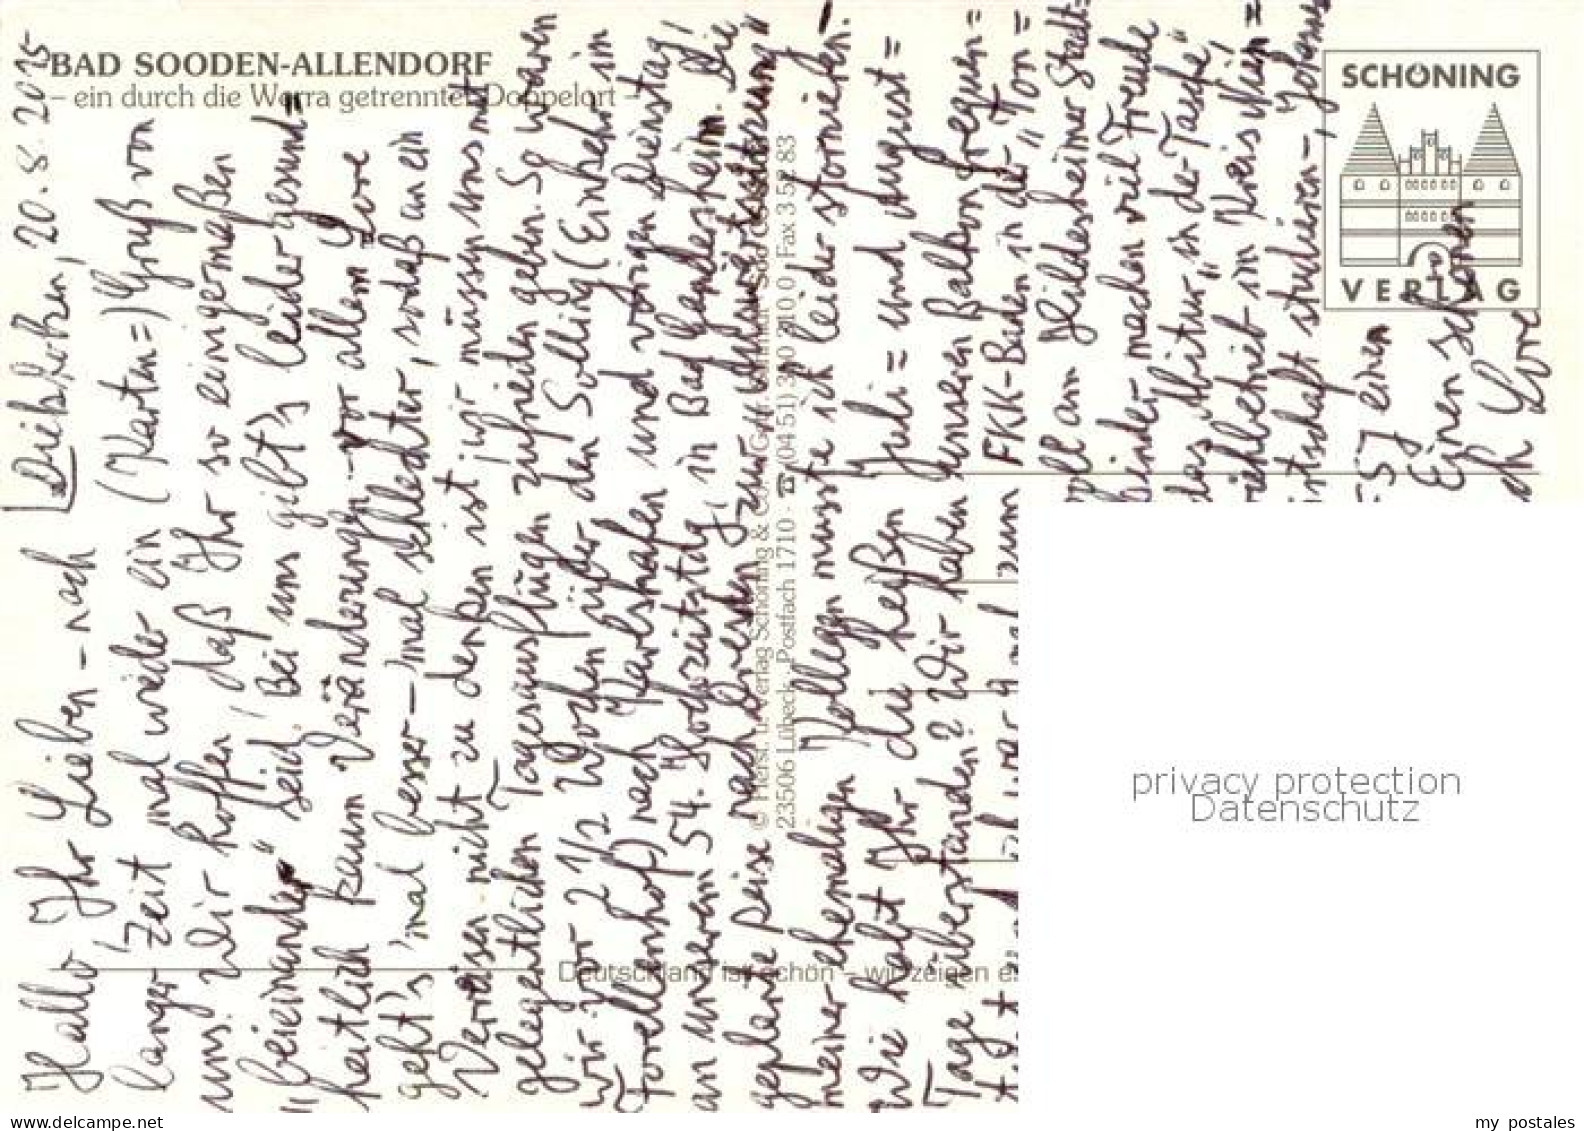 BAD SOODEN-ALLENDORF
– ein durch die Werra getrennter Doppelort –
SCHÖNING
VERLAG
20.8.2015
Hallo Ihr Lieben – nach
langer Zeit 'mal wieder ein (Karten=) Gruß von
uns. Wir hoffen, daß Ihr so einigermaßen
"beieinander" seid. Bei uns gibt's leider gesund=
heitlich kaum Veränderungen – vor allem Lore
geht's 'mal besser – 'mal schlechter, sodaß an ein
Verreisen nicht zu denken ist, wir müssen uns mit
gelegentlichen Tagesausflügen zufrieden geben. So waren
wir vor 2 1/2 Wochen über den Solling (Einkehr im
Forellenhof) nach Karlshafen und vorigen Dienstag,
an unserem 54. Hochzeitstag, in Bad Gandersheim. Die
geplante Reise nach Dresden zur
meiner ehemaligen Kollegen musste ich leider stornieren.
Wie habt Ihr die heißen Juli= und August=
Tage überstanden? Wir haben unseren Balkon frequen=
zum FKK-Baden in der "Ton=
am Hildesheimer Stadt=
kinder machen viel Freude
das "Abitur" in der Tasche,
im Kreis
studieren –, Johannes
einen
Einen schönen
Lore
© Herst. u. Verlag Schöning & Co
23506 Lübeck · Postfach 1710 · ☎ (04 51) 3 10 310 0 Fax 3 52 83
Deutschland ist schön – wir zeigen e
privacy protection
Datenschutz
www.delcampe.net
my postales